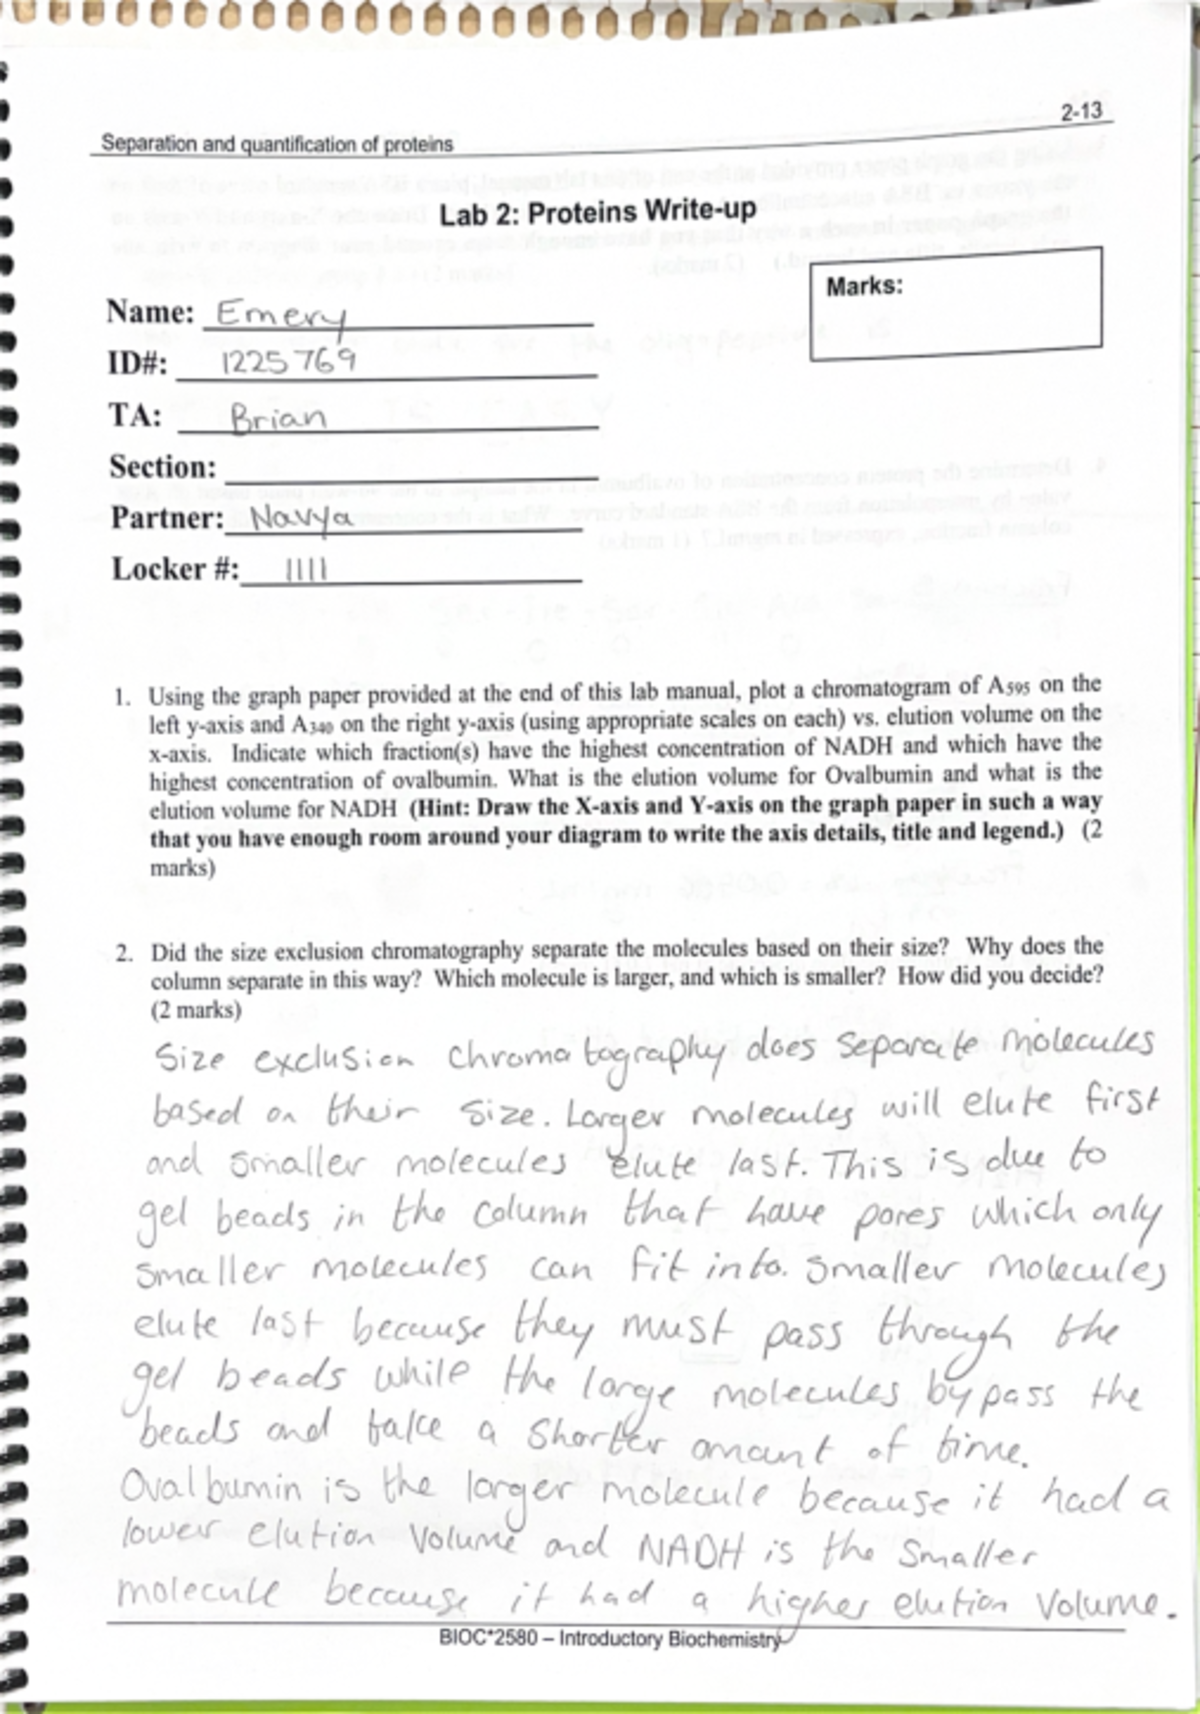 2-13
Separation and quantification of proteins
Lab 2: Proteins Write-up
Marks:
Name: Emery
ID#: 1225769
TA: Brian
Section:
Partner: Navya
Locker #: 1111
1. Using the graph paper provided at the end of this lab manual, plot a chromatogram of A595 on the
left y-axis and A340 on the right y-axis (using appropriate scales on each) vs. elution volume on the
x-axis. Indicate which fraction(s) have the highest concentration of NADH and which have the
highest concentration of ovalbumin. What is the elution volume for Ovalbumin and what is the
elution volume for NADH (Hint: Draw the X-axis and Y-axis on the graph paper in such a way
that you have enough room around your diagram to write the axis details, title and legend.) (2
marks)
2. Did the size exclusion chromatography separate the molecules based on their size? Why does the
column separate in this way? Which molecule is larger, and which is smaller? How did you decide?
(2 marks)
Size exclusion chromatography does separate molecules
based on their size. Larger molecules will elute first
and smaller molecules elute last. This is due to
gel beads in the column that have pores which only
smaller molecules can fit into. Smaller molecules
elute last because they must pass through the
gel beads while the large molecules bypass the
beads and take a shorter amount of time.
Ovalbumin is the larger molecule because it had a
lower elution volume and NADH is the smaller
molecule because it had a higher elution volume.
BIOC*2580 – Introductory Biochemistry